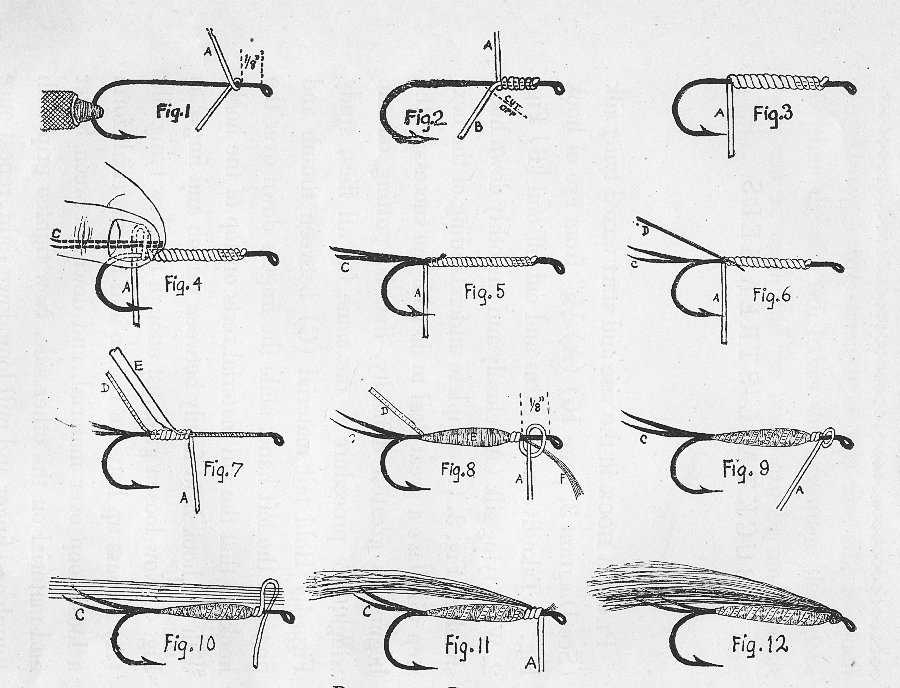 A
1/8"
Fig.1
A
B
CUT
OFF
Fig.2
A
Fig.3
C
A
Fig.4
C
A
Fig.5
D
C
A
Fig.6
E
D
A
Fig.7
1/8"
D
E
A
F
Fig.8
C
A
Fig.9
C
Fig.10
C
A
Fig.11
Fig.12